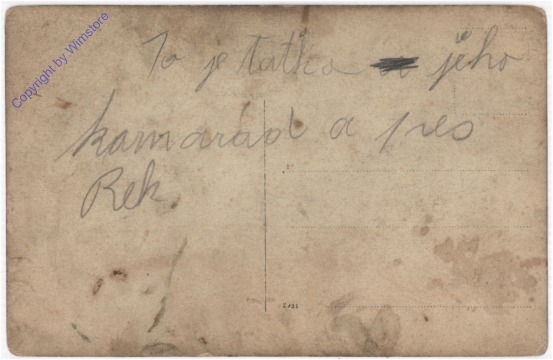 Copyright by Wimstore
To je tatka jeho
kamarád a pes
Rek.